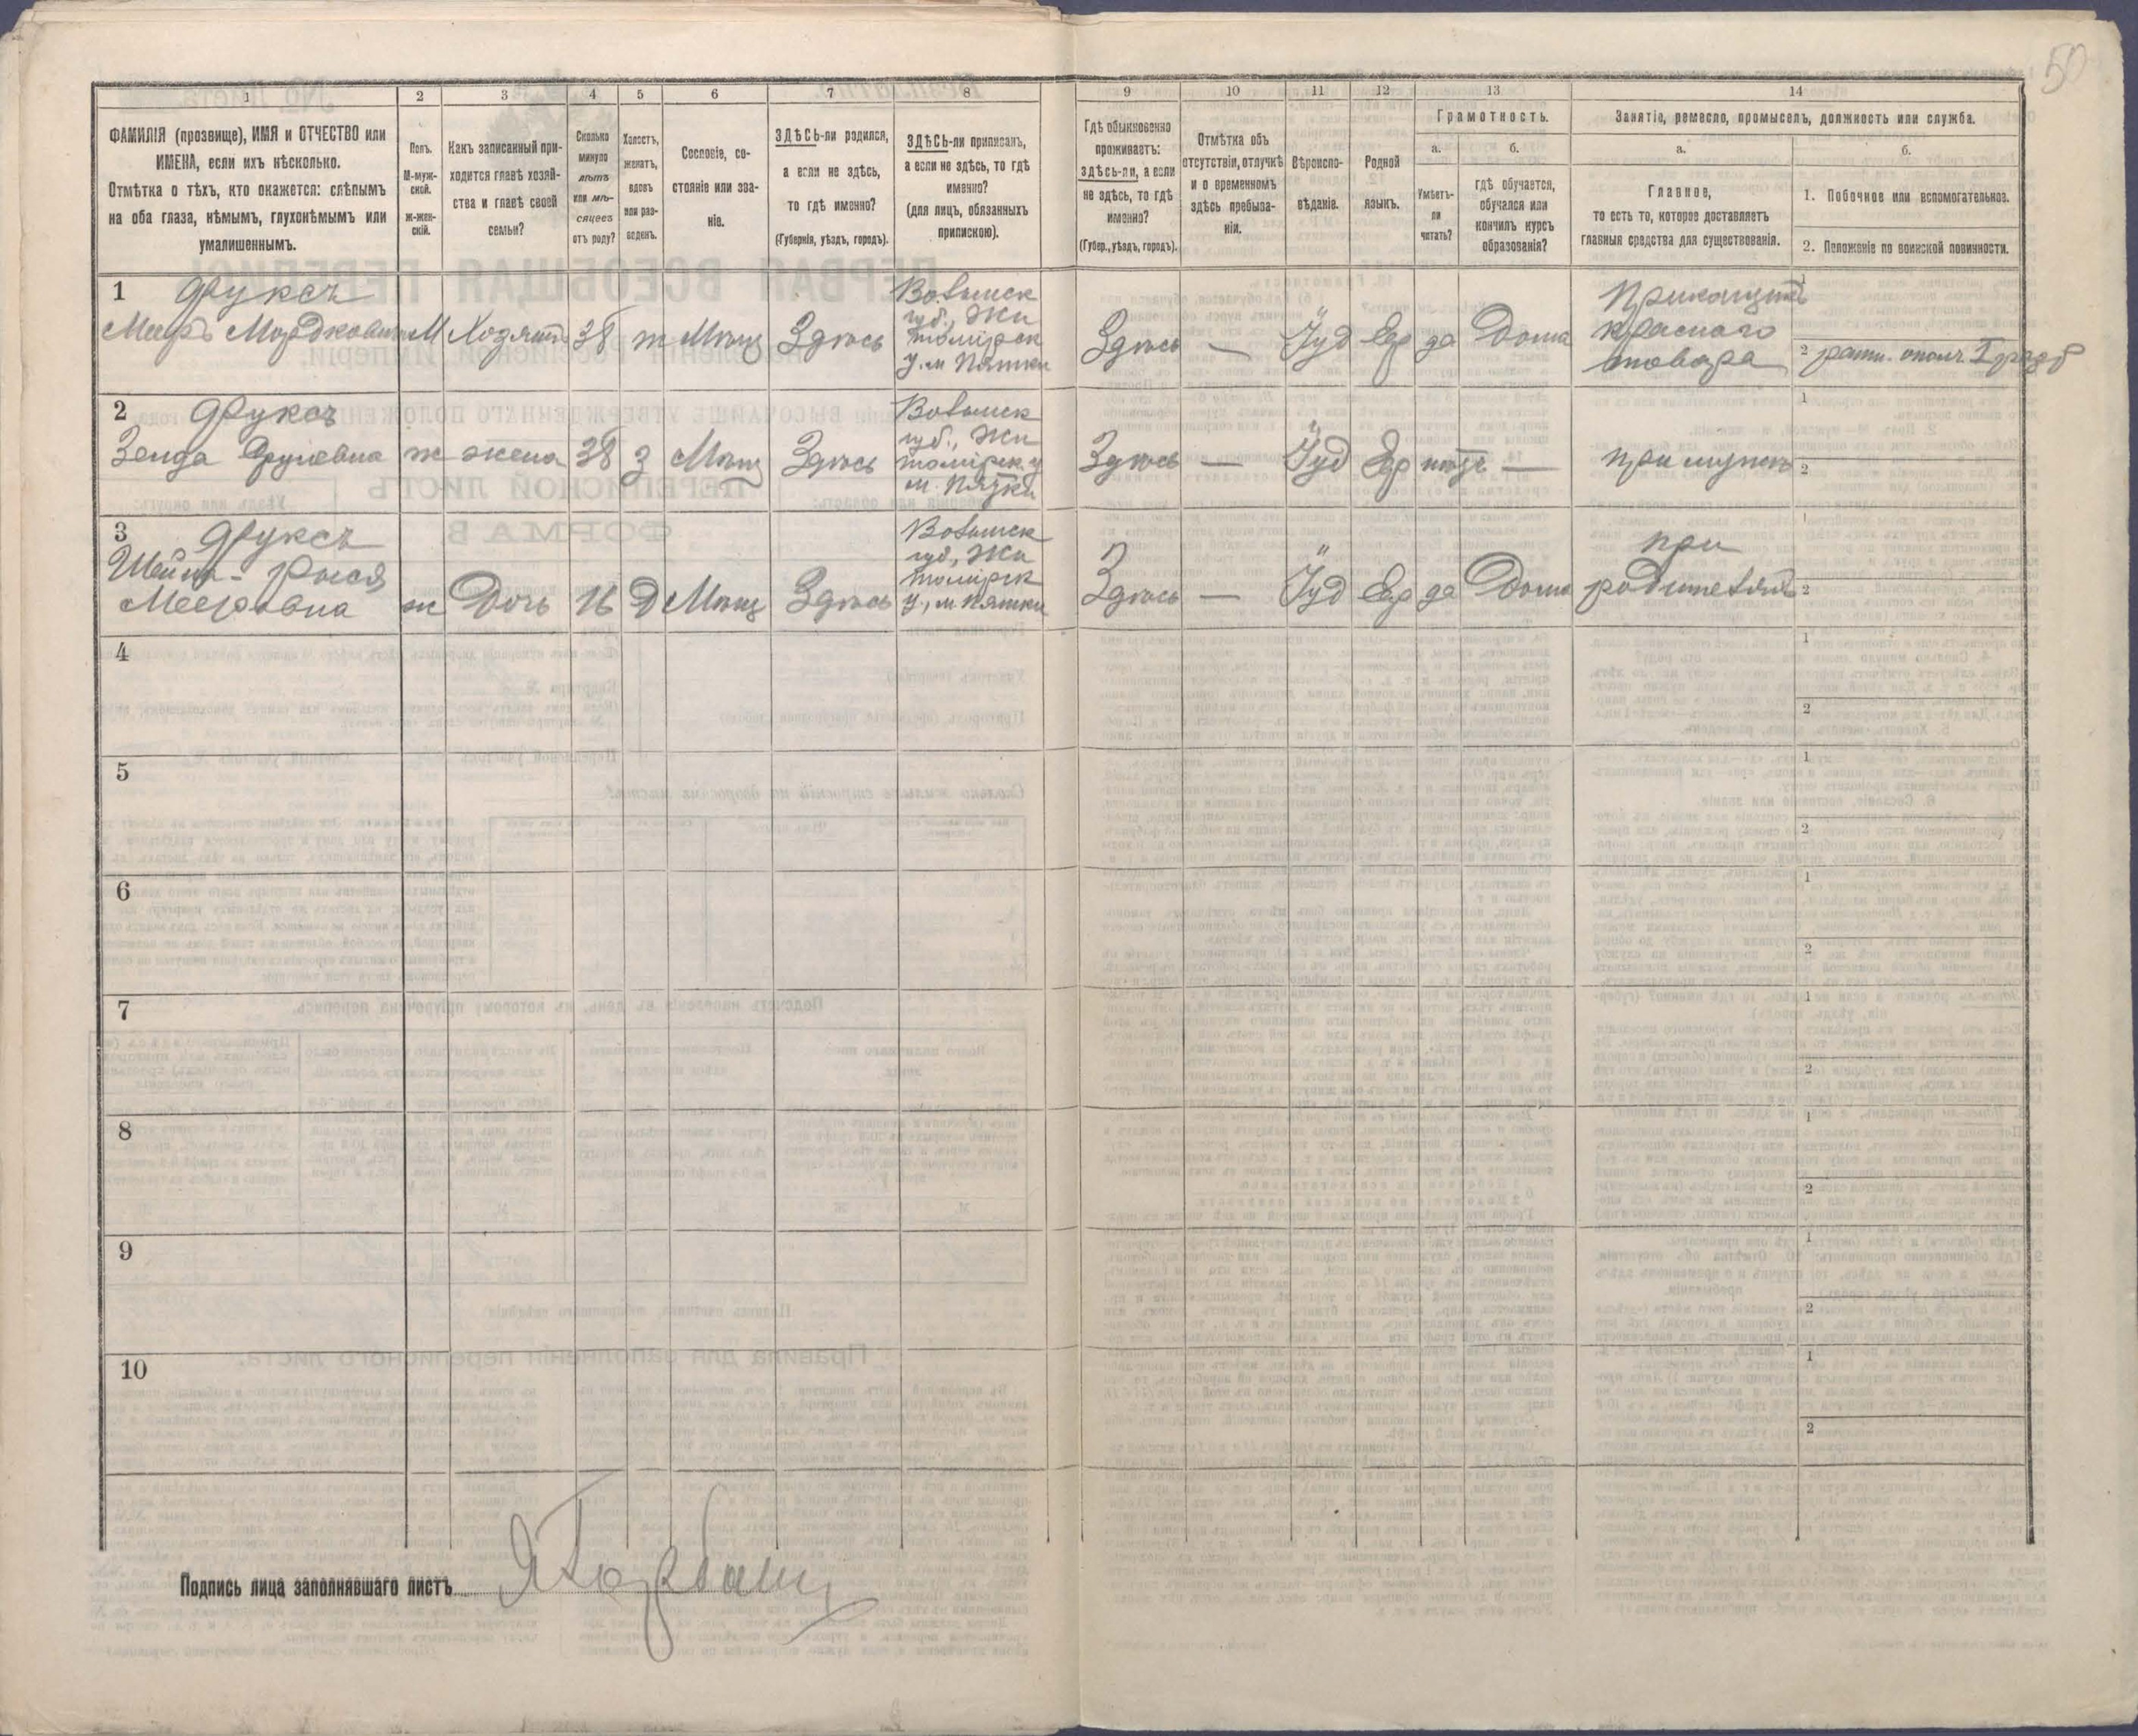 50
1
2
3
4
5
6
7
8
9
10
11
12
13
14
ФАМИЛІЯ (прозвище), ИМЯ и ОТЧЕСТВО или
ИМЕНА, если ихъ нѣсколько.
Отмѣтка о тѣхъ, кто окажется: слѣпымъ
на оба глаза, нѣмымъ, глухонѣмымъ или
умалишеннымъ.
Полъ.
М-муж-
ской.
Ж-жен-
скій.
Какъ записанный при-
ходится главѣ хозяй-
ства и главѣ своей
семьи?
Сколько
минуло
лѣтъ
или мѣ-
сяцевъ
отъ роду?
Холостъ,
женатъ,
вдовъ
или раз-
веденъ.
Сословіе, со-
стояніе или зва-
ніе.
ЗДѢСЬ-ли родился,
а если не здѣсь,
то гдѣ именно?
(Губернія, уѣздъ, городъ).
ЗДѢСЬ-ли приписанъ,
а если не здѣсь, то гдѣ
именно?
(для лицъ, обязанныхъ
припискою).
Гдѣ обыкновенно
проживаетъ:
здѣсь-ли, а если
не здѣсь, то гдѣ
именно?
(Губер., уѣздъ, городъ).
Отмѣтка объ
отсутствіи, отлучкѣ
и о временномъ
здѣсь пребыва-
ніи.
Вѣроиспо-
вѣданіе.
Родной
языкъ.
Грамотность.
а.
Умѣетъ-
ли
читать?
б.
гдѣ обучается,
обучался или
кончилъ курсъ
образованія?
Занятіе, ремесло, промыселъ, должность или служба.
а.
Главное,
то есть то, которое доставляетъ
главныя средства для существованія.
б.
1. Побочное или вспомогательное.
2. Положеніе по воинской повинности.
1 Фуксъ
Мееръ Мордковичъ
М
Хозяинъ
38
ж
Мѣщ
Здѣсь
Волынск
губ., Жи
томирск
у. м Пятки
Здѣсь
—
Іуд
Евр
да
Дома
Прикащикъ
краснаго
товара
1
2 ратн. ополч. I разр
2 Фуксъ
ж
жена
38
З
Мѣщ
Здѣсь
Волынск
губ., Жи
томирск. у
м. Пятки
Здѣсь
—
Іуд
Евр
нѣтъ
—
при мужѣ
1
2
3 Фуксъ
Мееровна
ж
Дочь
16
Д
Мѣщ
Здѣсь
Волынск
губ., Жи
томирск
у., м Пятки
Здѣсь
—
Іуд
Евр
да
Дома
при
родителяхъ
1
2
4
1
2
5
1
2
6
1
2
7
1
2
8
1
2
9
1
2
10
1
2
Подпись лица заполнявшаго листъ